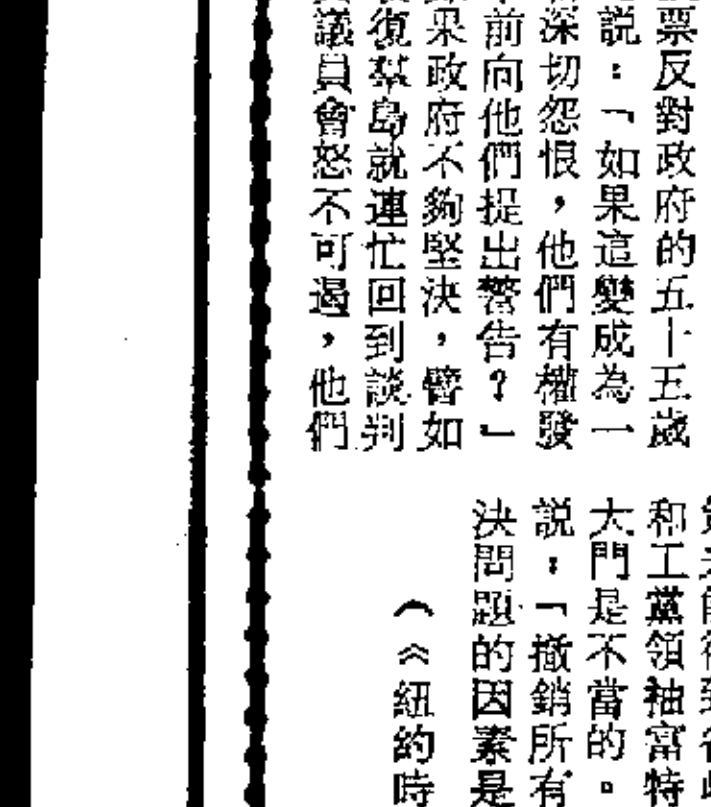 票反對政府的五十五歲
説：「如果這變成為一
深切怨恨，他們有權發
前向他們提出警告？」
果政府不夠堅決，譬如
復羣島就連忙回到談判
議員會怒不可遏，他們
和工黨領袖富特
大門是不當的。
説：「撤銷所有
決問題的因素是
（《紐約時